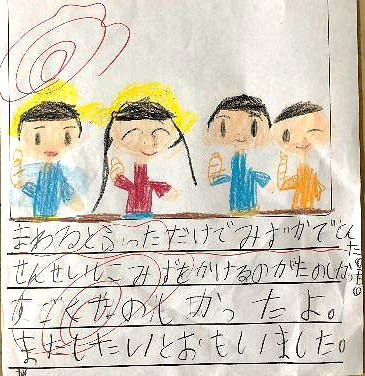 まわるとふっただけでみずがで
せんせいにみずをかけるのがたのしかっ
すごくたのしかったよ。
またしたいとおもいました。